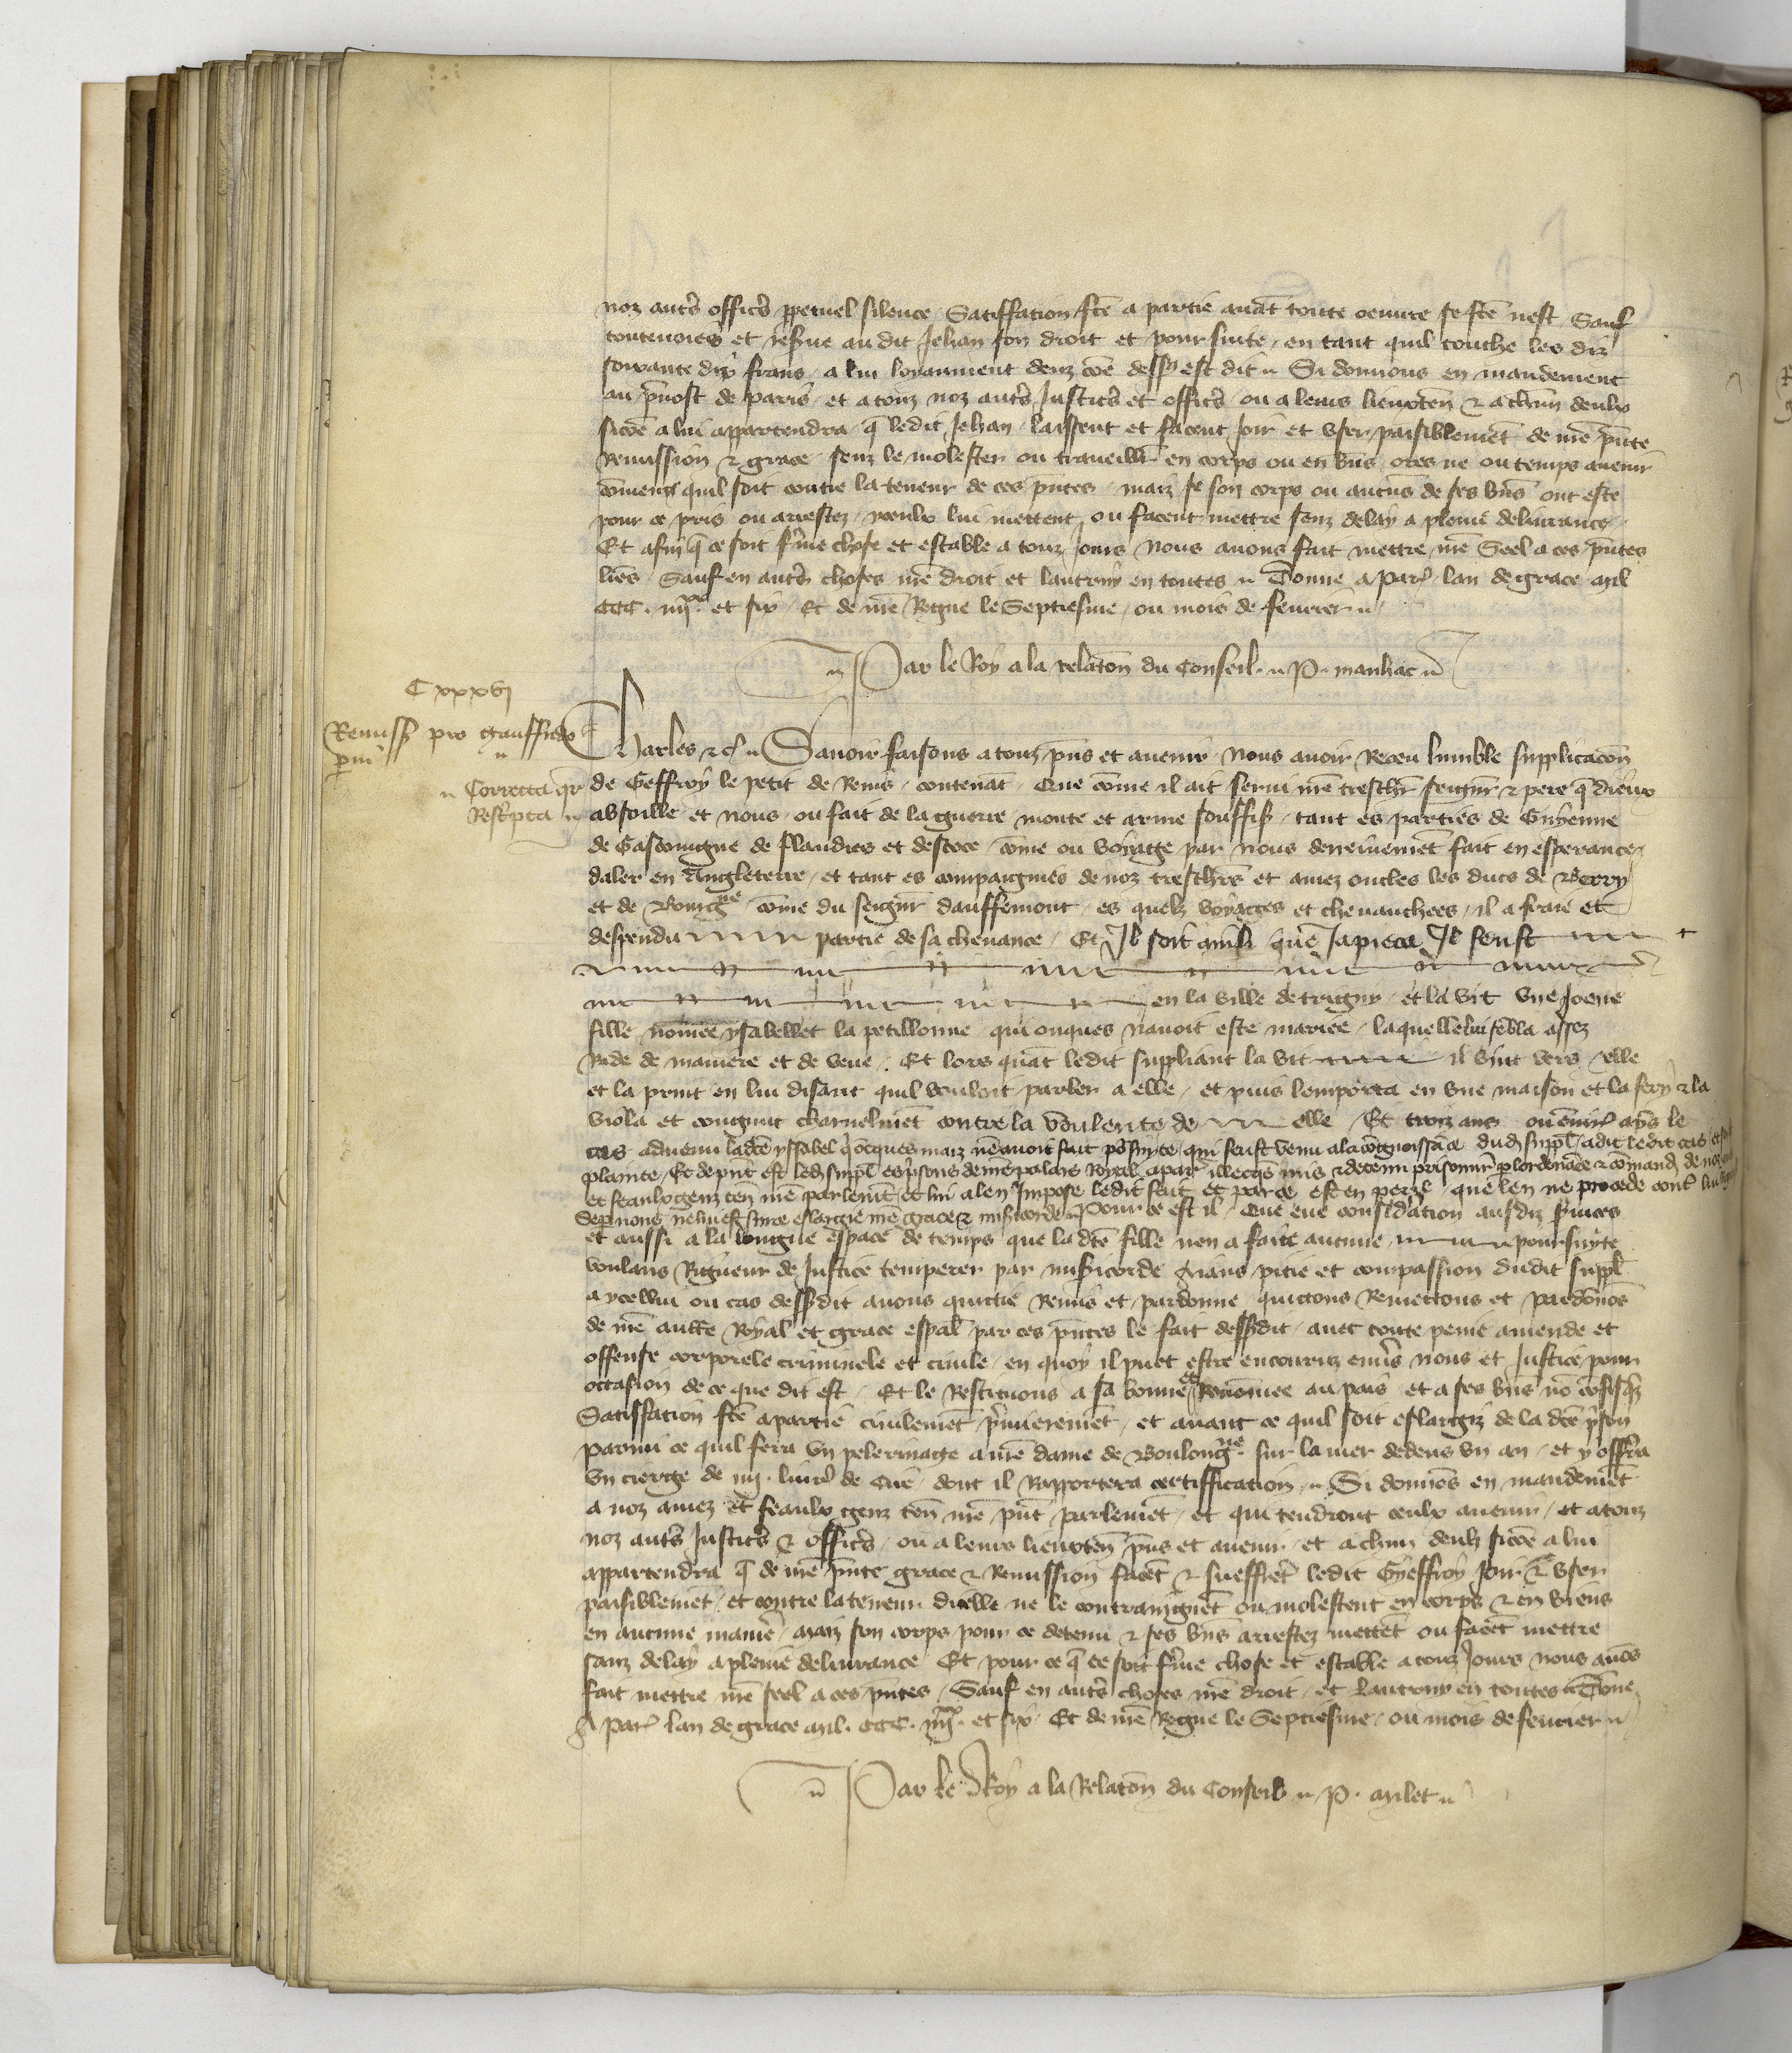 noz autrs offics ppetuel silence Satiffation fte a partie avat toute oeuvre se fte nest Sauf
toutevoies et resve au dit Jehan son droit et poursuite en tant quil touche les diz
soixante dix frans a lui loyaument deuz coe dess est dit Si donnons en mandement
au pvost de paris et a touz noz autrs Justicrs et officrs ou a leurs lieuxten & a chun deulx
sicoe a lui appartendra q ledit Jehan laissent et facent joir et user paisiblemet de nre pnte
Remission & grace senz le molester ou traveillr en corps ou en bns ores ne ou temps avenir
coment quil soit contre la teneur de ces pntes maiz se son corps ou aucus de ses bns ont este
pour ce pris ou arrestez yceulx lui mettent ou facent mettre senz delay a pleine delivrance
Et afin q ce soit ferme chose et estable a touz jours Nous avons fait mettre nre Seel a ces pntes
lres Sauf en autrs choses nre droit et lautruy en toutes Donne a Par lan de grace mil
CCC. iiijxx et six Et de nre Regne le Septiesme ou mois de fevrier
Par le Roy a la relaton du Conseil. P. manhac
C xxxvj
Remiss pro Gauffrido
pvi
Correcta qr
Rescpta
Charles &c Savoir faisons a touz pns et avenir Nous avoir Receu lumble supplicacon
de Geffroy le petit de Reins contenat Que come il ait servi nre treschr seignr & pere q dieux
absoille et nous ou fait de la guerre monte et arme souffis tant es parties de Guyenne
de Gascoingne de flandres et descoce come ou voyage par nous derreinemet fait en esperance
daler en Angleterre et tant es compaignies de noz treschrs et amez oncles les ducs de Berry
et de Bourgne come du seignr dauffemont es quelz voyages et chevauchees il a fraie et
despendu partie de sa chevance Et Il soit ainsi que Japieca Il feust
en la ville de trugny et la vit une Joene
fille nomee ysabellet la petillonne qui onques navoit este mariee laquelle lui sebla assez
Rude de maniere et de veue Et lors quat ledit suppliant la vit il vint vers elle
et la print en lui disant quil vouloit parler a elle et puis lemporta en une maison et la fery & la
viola et congnut charnelmet contre la voulente de elle Et troiz ans ou enviro aps le
cas advenu ladte yssabel q ocques maiz nen avoit fait poursuyte qui feust venu a la cognoissace dud suppl a dit ledit cas et fait
plainte Et de pnt est led suppl es prisons de nre palais Royal a par illecqs mis & detenu prisonnr p lordenace & comand de noz amez
et feaulx genz ten nre parlemt et lui a len Impose ledit fait Et par ce est en peril que len ne procede cont lui
Se p nous ne lui est sur ce eslargie nre grace & misericorde Pour ce est il Que eue considation ausdiz svices
et aussi a la longue espace de temps que la dte fille nen a faite aucune poursuyte
voulans Rigueur de Justice temperer par misericorde Aians pitie et compassion dudit suppl
a ycellui ou cas dessdit avons quictie Remis et pardonne quictons Remettons et pardonos
de nre aucte Royal et grace espal par ces pntes le fait dessdit avec toute peine amende et
offense corporele criminele et civile en quoy il puet estre encouruz envrs nous et Justice pour
occasion de ce que dit est Et le Restituons a sa bonne Renomee au pais et a ses bns no cofisqz
Satiffation fte a partie civilemet primieremet et avant ce quil soit eslargiz de la dte pson
parmi ce quil fera un pelerinage a nre dame de Boulongne sur la mer dedens un an et y offrra
un cierge de iij. livres de Cire dont il Rapportera certiffication Si donnos en mandemet
a noz amez et feaulx genz ten nre pnt parlemet et qui tendront ceulx avenir et a touz
noz autrs Justicrs & officrs ou a leurs lieuxten pns et avenir et a chun deulz sicoe a lui
appartendra q de nre pnte grace & Remission facet & sueffret ledit Gyeffroy Joir & user
paisiblemet et contre la teneur dicelle ne le contraingnet ou molestent en corps & en biens
en aucune manie Maiz son corps pour ce detenu & ses bns arrestez mettet ou facet mettre
sanz delay a pleine delivrance Et pour ce q ce soit ferme chose et estable a touz Jours nous avos
fait mettre nre seel a ces pntes Sauf en autrs choses nre droit et lautruy en toutes Donne
A Par lan de grace Mil. CCC. iiijxx. et six Et de nre Regne le Septiesme ou mois de fevrier
Par le Roy a la Relaton du Conseil P. Milet